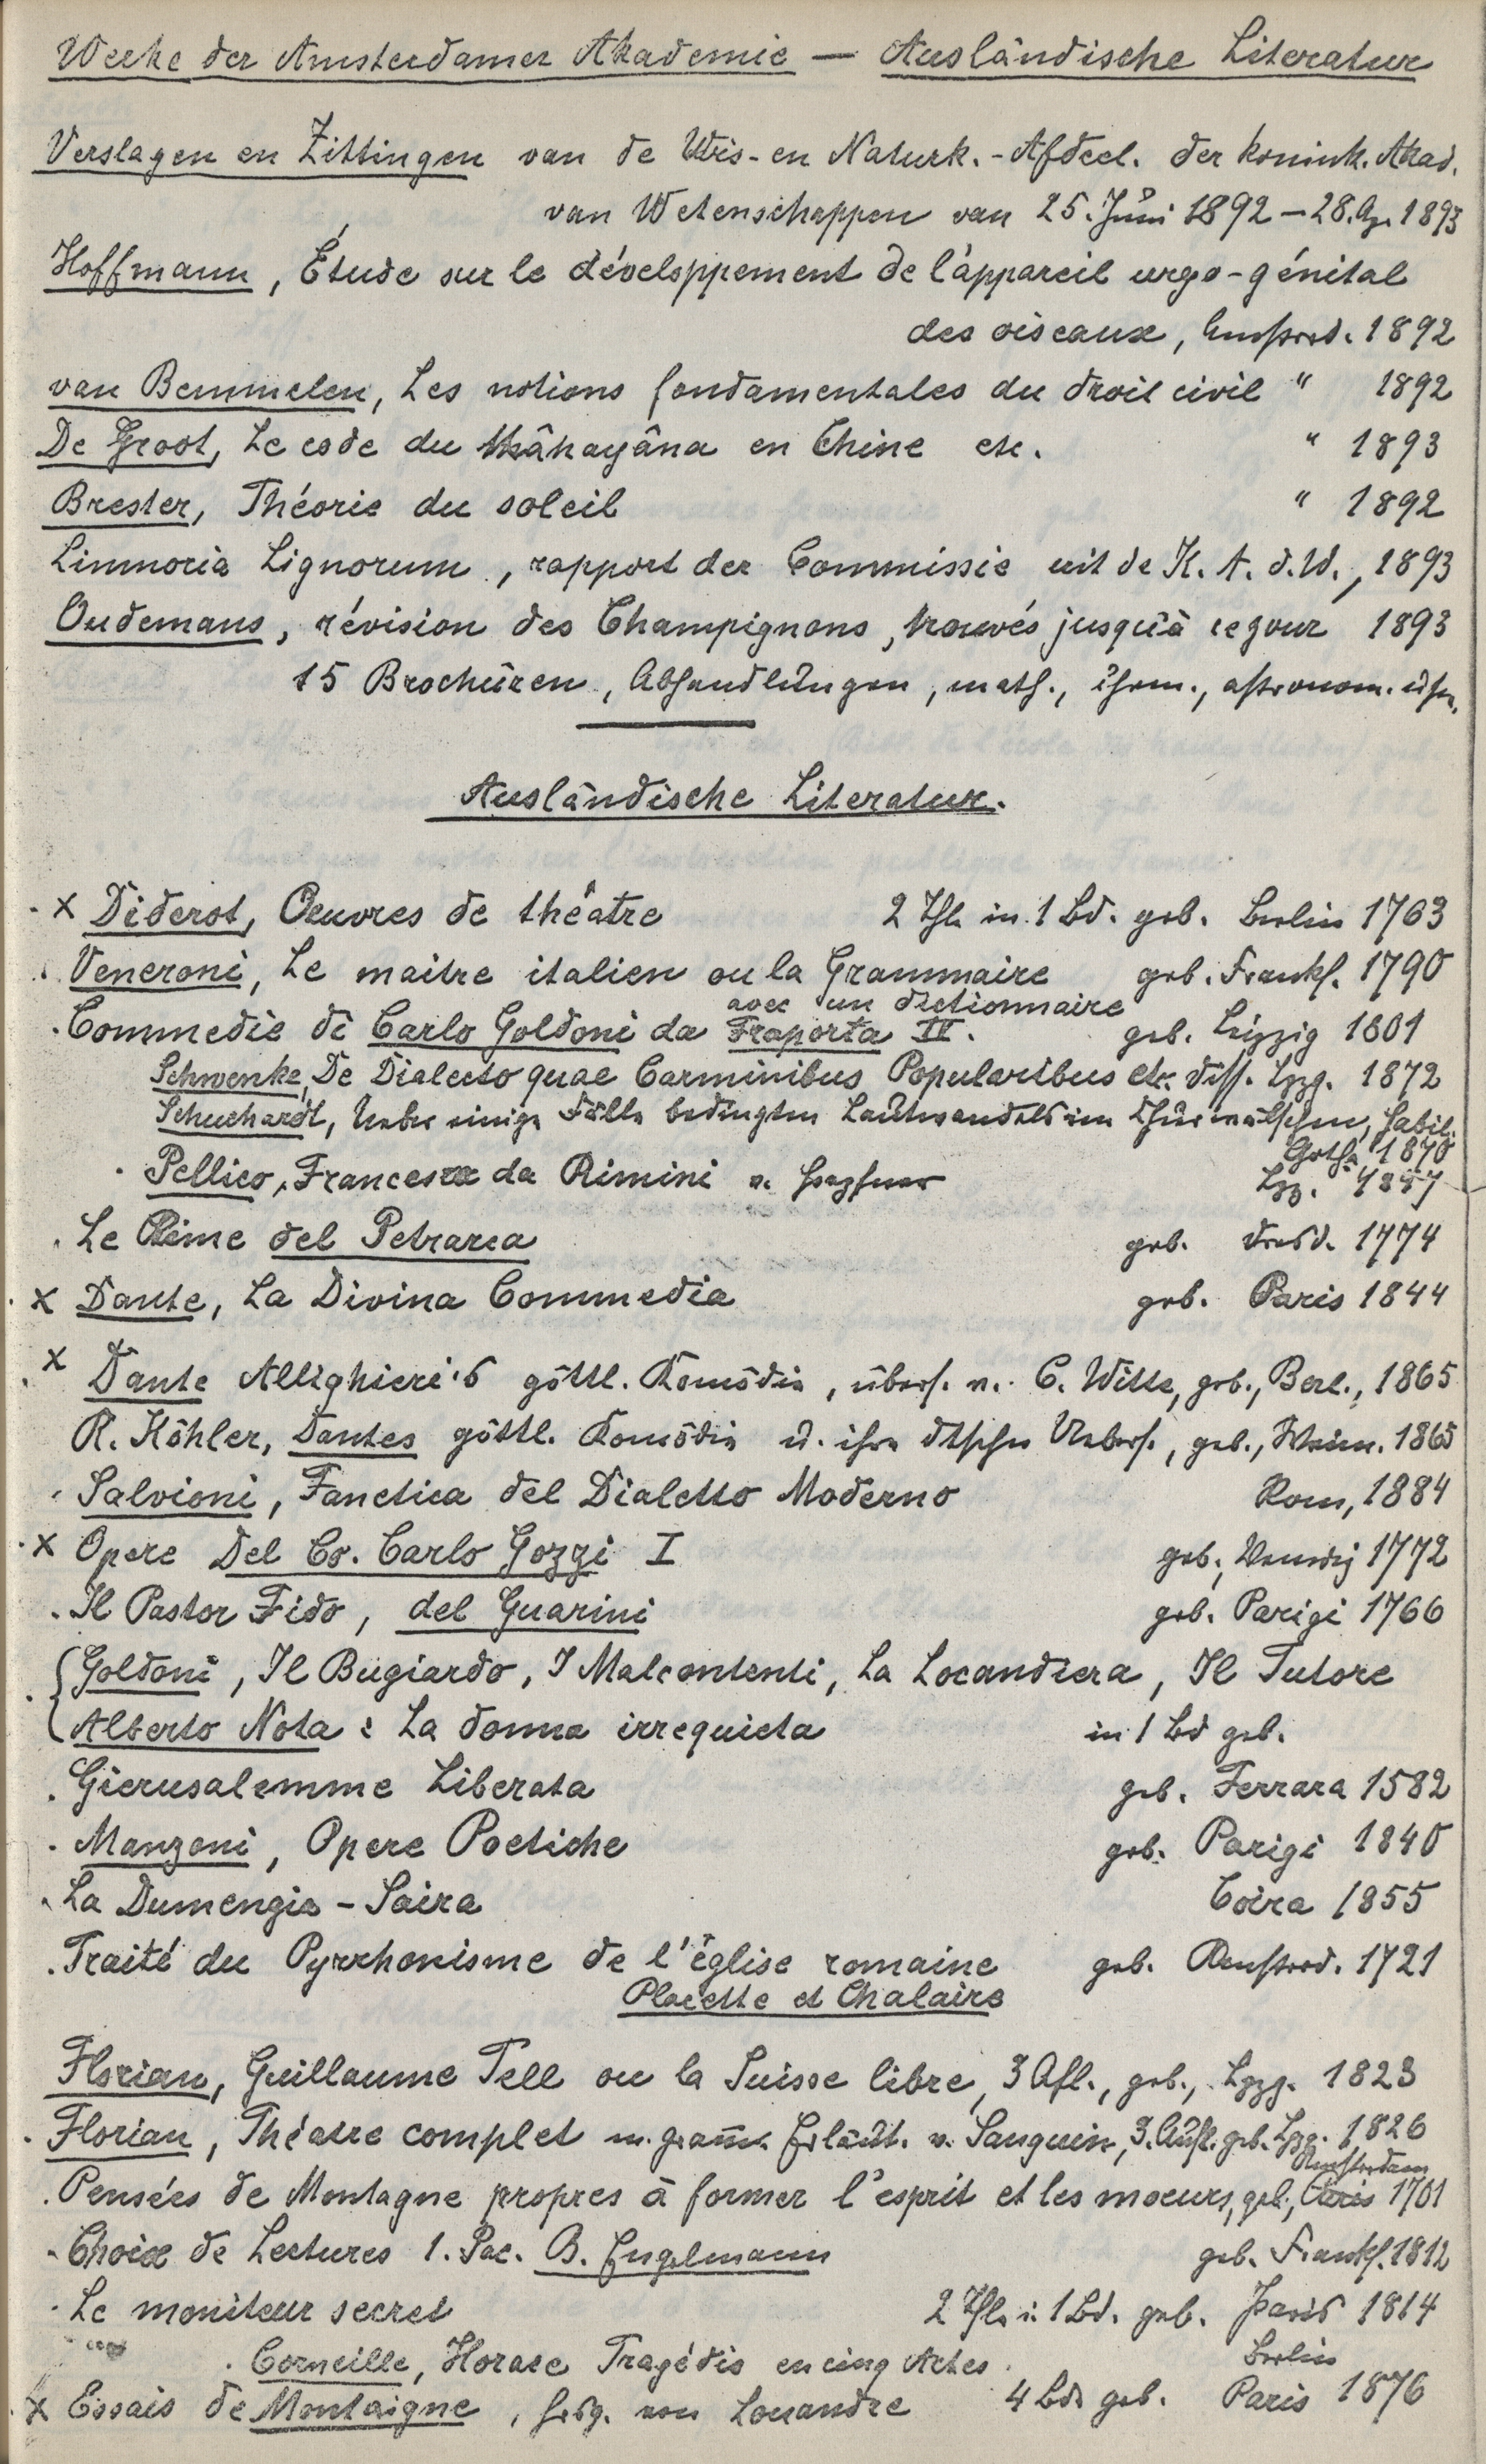 Werke der Amsterdamer Akademie — Ausländische Literatur
Verslagen en Zittingen van de Wis- en Naturk.-Afdeel. der konink. Akad.
van Wetenschappen van 25. Juni 1892 – 28. Ap. 1893
Hoffmann, Étude sur le développement de l'appareil urgo-génital
des oiseaux, Amsterd. 1892
van Bemmelen, Les notions fondamentales du droit civil " 1892
De Groot, Le code du Mâhayâna en Chine etc. " 1893
Brester, Théorie du soleil " 1892
Limnoria Lignorum, rapport der Commissie uit de K. A. d. W., 1893
Oudemans, révision des Champignons, trouvés jusqu'à ce jour 1893
15 Brochüren, Abhandlungen, math., chem., astronom. usw.
Ausländische Literatur.
x Diderot, Oeuvres de théatre 2 Thle in 1 Bd. geb. Berlin 1763
Veneroni, Le maitre italien ou la Grammaire geb. Frankf. 1790
avec un dictionnaire
Commedie di Carlo Goldoni da Fraporta IV. geb. Leipzig 1801
Schwenke, De Dialecto quae Carminibus Popularibus etc. diss. Lpzg. 1872
Schuchardt, Ueber einige Fälle bedingten Lautwandels im Churwälschen, Habil.
Gotha 1870
Pellico, Francesca da Rimini v. Lpz. 1837
Le Rime del Petrarca geb. Dresd. 1774
x Dante, La Divina Commedia geb. Paris 1844
x Dante Allighieri's göttl. Komödie, übers. v. C. Witte, geb., Berl., 1865
R. Köhler, Dantes göttl. Komödie u. ihre dtschen Uebers., geb., Weim. 1865
Salvioni, Fonetica del Dialetto Moderno Rom, 1884
x Opere Del Co. Carlo Gozzi I geb., Venedig 1772
Il Pastor Fido, del Guarini geb. Parigi 1766
Goldoni, Il Bugiardo, I Malcontenti, La Locandiera, Il Tutore
Alberto Nota: La donna irrequieta in 1 Bd geb.
Gierusalemme Liberata geb. Ferrara 1582
Manzoni, Opere Poetiche geb. Parigi 1840
La Dumengia-Saira Coira 1855
Traité du Pyrrhonisme de l'église romaine geb. Amsterd. 1721
Placette et Chalaire
Florian, Guillaume Tell ou la Suisse libre, 3 Afl., geb., Lpzg. 1823
Florian, Théatre complet m. gramm. Erläut. v. Sanguin, 3. Aufl. geb. Lpzg. 1826
Amsterdam
Pensées de Montagne propres à former l'esprit et les moeurs, geb., Paris 1701
Choix de Lectures 1. Pac. B. Engelmann geb. Frankf. 1812
Le moniteur secret 2 Thle i. 1 Bd. geb. Paris 1814
Corneille, Horace Tragédie en cinq Actes Berlin
x Essais de Montaigne, hrsg. von Louandre 4 Bde geb. Paris 1876